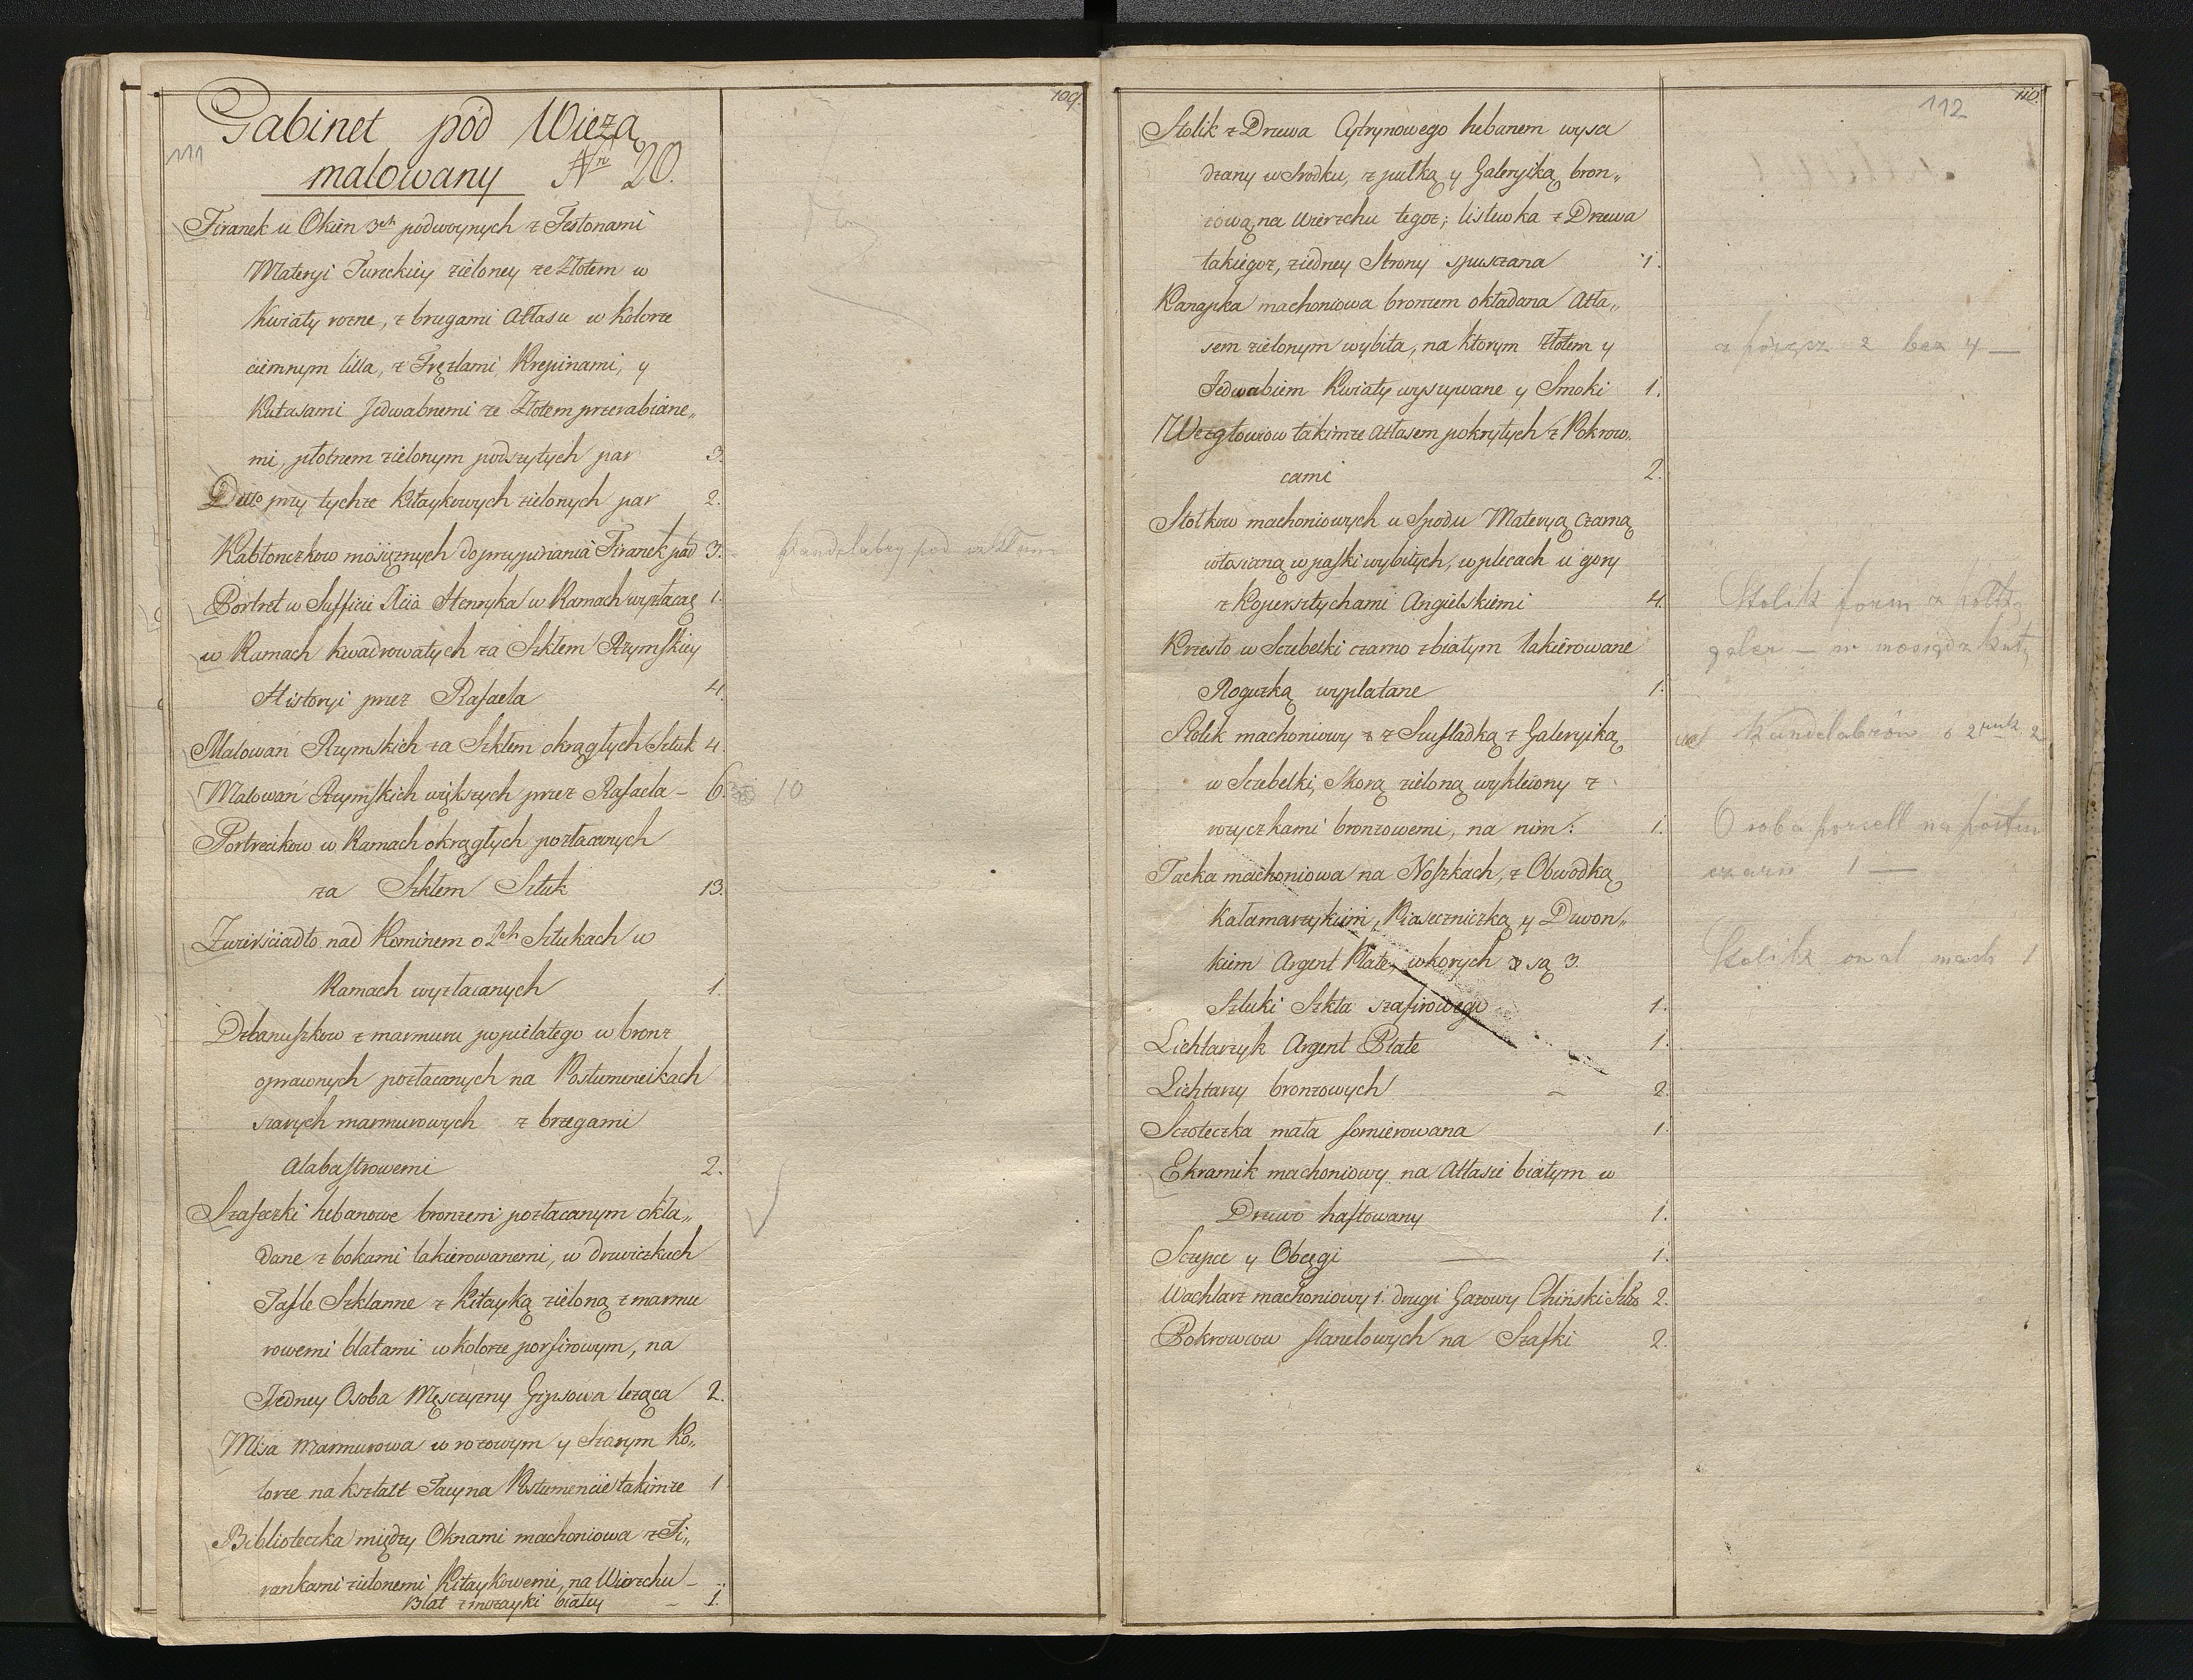 109.
111
Gabinet pod Wieżą
malowany Nr 20.
Firanek u Okien 3ch podwoynych z Festonami
Materyi Tureckiey zieloney ze Złotem w
Kwiaty rozne, z brzegami Atłasu w Kolorze
ciemnym lilla, z Fręzlami, Krepinami, y
Kutasami Jedwabnemi ze Złotem przerabiane„
mi, płotnem zielonym podszytych par 3.
Ditto przy tychże Kitaykowych zielonych par 2.
Kabłonczkow mosiężnych do przypinania Firanek par 3.
Kandelabry pod
Portret w Suffici Xcia Henryka w Ramach wyzłacaę 1.
w Ramach kwadrowatych za Szkłem Rzymskiey
Historyi przez Rafaela 4.
Malowań Rzymskich za Szkłem okrągłych Sztuk 4.
Malowań Rzymskich większych przez Rafaela – 6. 10
Portrecikow w Ramach okrągłych pozłacanych
za Szkłem Sztuk 13.
Zwierściadło nad Kominem o 2ch Sztukach w
Ramach wyzłacanych 1.
Dzbanuszkow z marmuru popielatego w bronz
oprawnych pozłacanych na Postumencikach
szarych marmurowych z brzegami
Alabastrowemi 2.
Szafeczki hebanowe bronzem pozłacanym okła„
dane z bokami lakierowanemi, w drzwiczkach
Tafle Szklanne z Kitayką zieloną z marmu
rowemi blatami w kolorze porfirowym, na
Jedney Osoba Męsczyzny Gipsowa leżąca 2.
Misa marmurowa w rożowym y Szarym Ko„
lorze na kształt Tacy na Postumencie takimże 1
Biblioteczka między Oknami machoniowa z Fi„
rankami zielonemi Kitaykowemi, na Wierzchu –
Blat z mozayki białey – 1.
110.
112
Stolik z Drzewa Cytrynowego hebanem wysa
dzany w Srodku, z pułką y Galeryiką bron„
zową na wierzchu tegoż; listewka z Drzewa
takiegoż, z iedney Strony spusczana 1.
Kanapka machoniowa bronzem okładana Atła„
sem zielonym wybita, na ktorym Złotem y
2 bez 4 —
Jedwabiem Kwiaty wyszywane y Smoki 1.
Wezgłowiow takimże Atłasem pokrytych z Pokrow.
cami 2.
Stołkow machoniowych u Spodu Materyą czarną
włosianą w paski wybitych, w plecach u gory
z Kopersztychami Angielskiemi 4.
Stolik forn z półką
Krzesło w Sczebelki czarno z białym lakierowane
galer — w mosiądz kut.
Rogużką wyplatane 1.
Stolik machoniowy z z Szufladką z Galeryiką
Kandelabrów o 2 2
w Sczebelki, Skorą zieloną wykleiony z
rożyczkami bronzowemi, na nim: 1.
Osoba porcell na postum
Tacka machoniowa na Noszkach, z Obwodką
czarn 1 —
Kałamarzykiem, Piaseczniczką y Dzwon„
kiem Argent Plate, w korych są 3.
Stolik owal mach 1
Sztuki Szkła szafirowego 1.
Lichtarzyk Argent Plate 1.
Lichtarzy bronzowych – 2.
Sczoteczka mała fornierowana 1.
Ekranik machoniowy na Atłasie białym w
Drzewo haftowany 1.
Sczypce y Obcęgi — 1.
Wachlarz machoniowy 1. drugi Gazowy Chiński 2.
Pokrowcow flanelowych na Szafki 2.